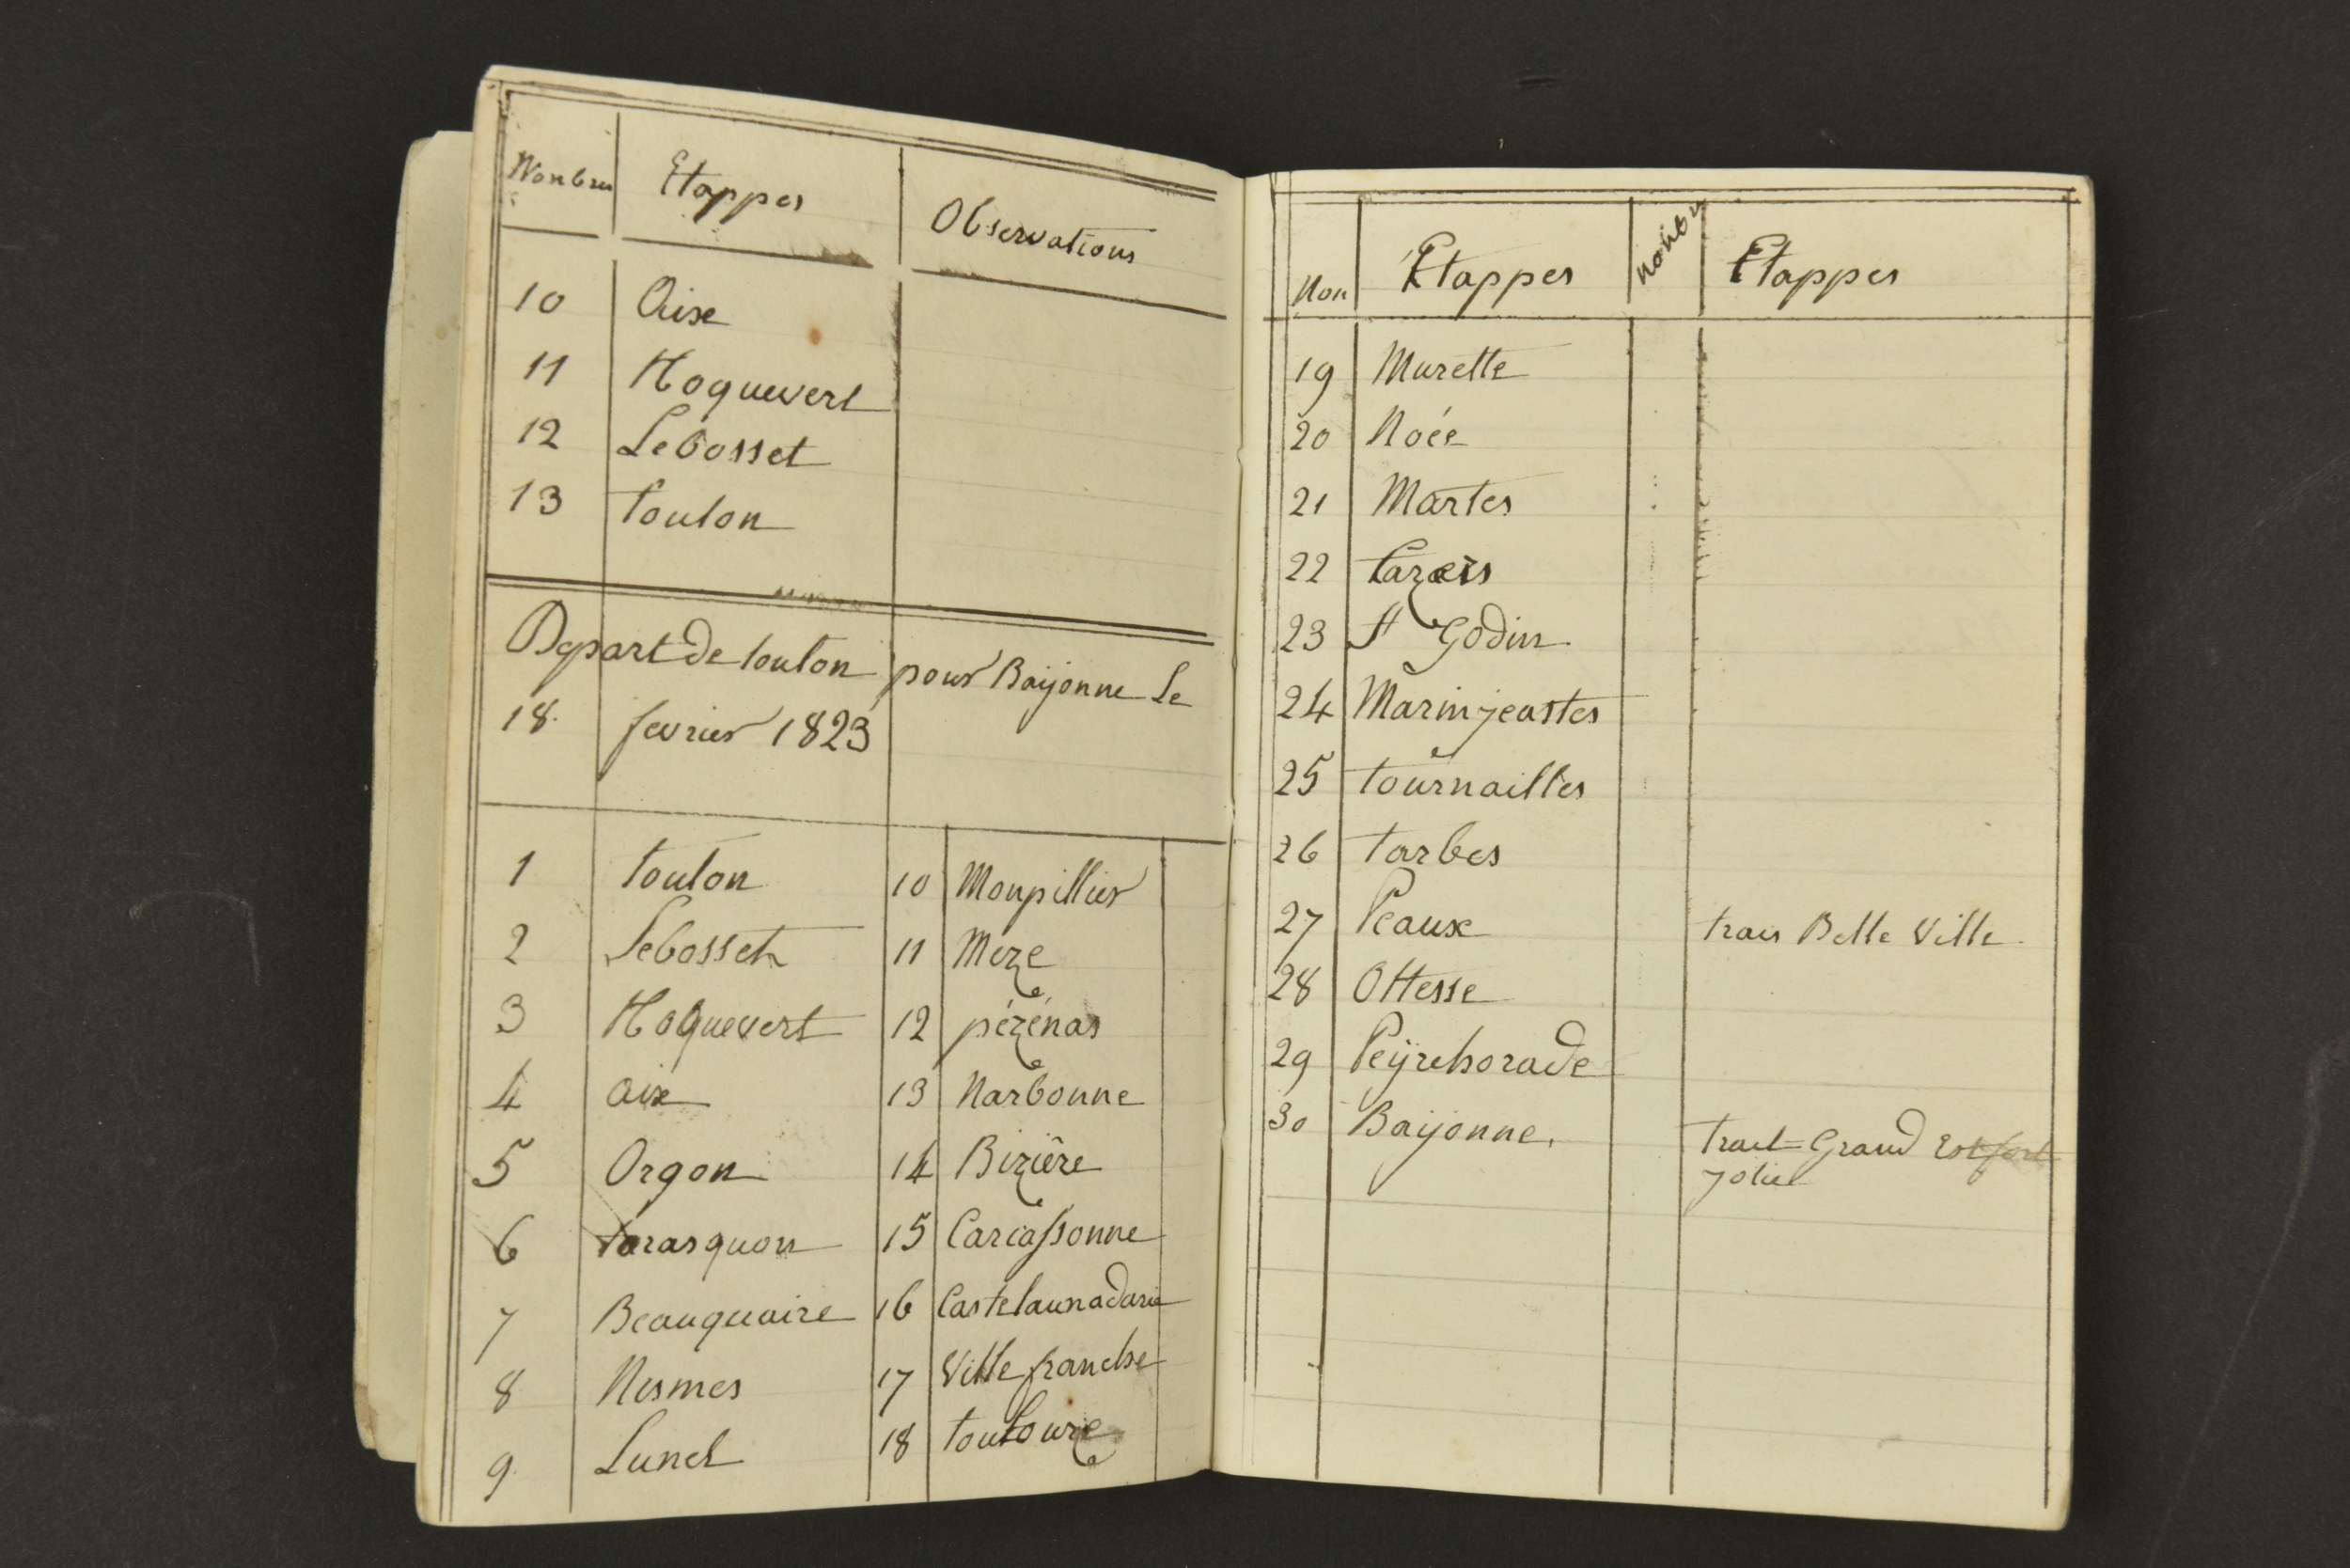 Nonbre Etappes Observations
10 Aixe
11 Roquevert
12 Lebosset
13 toulon
Depart de toulon pour Baÿonne Le
18 fevrier 1823
1 toulon
2 Lebosset
3 Roquevert
4 aixe
5 Orgon
6 tarasquon
7 Beauquaire
8 Nismes
9 Lunel
10 Monpillier
11 Meze
12 pézénas
13 Narbonne
14 Bizière
15 Carcassonne
16 Castelaunadarie
17 Ville franche
18 toulouze
Non Etappes nonbre Etappes
19 Murette
20 Noée
21 Martes
22 Cazers
23 St Godin
24 Marinjeastes
25 tournailles
26 tarbes
27 Peaux trais Belle Ville
28 Ottesse
29 Peÿrehorade
30 Baÿonne, trait Grand Est fort
jolie